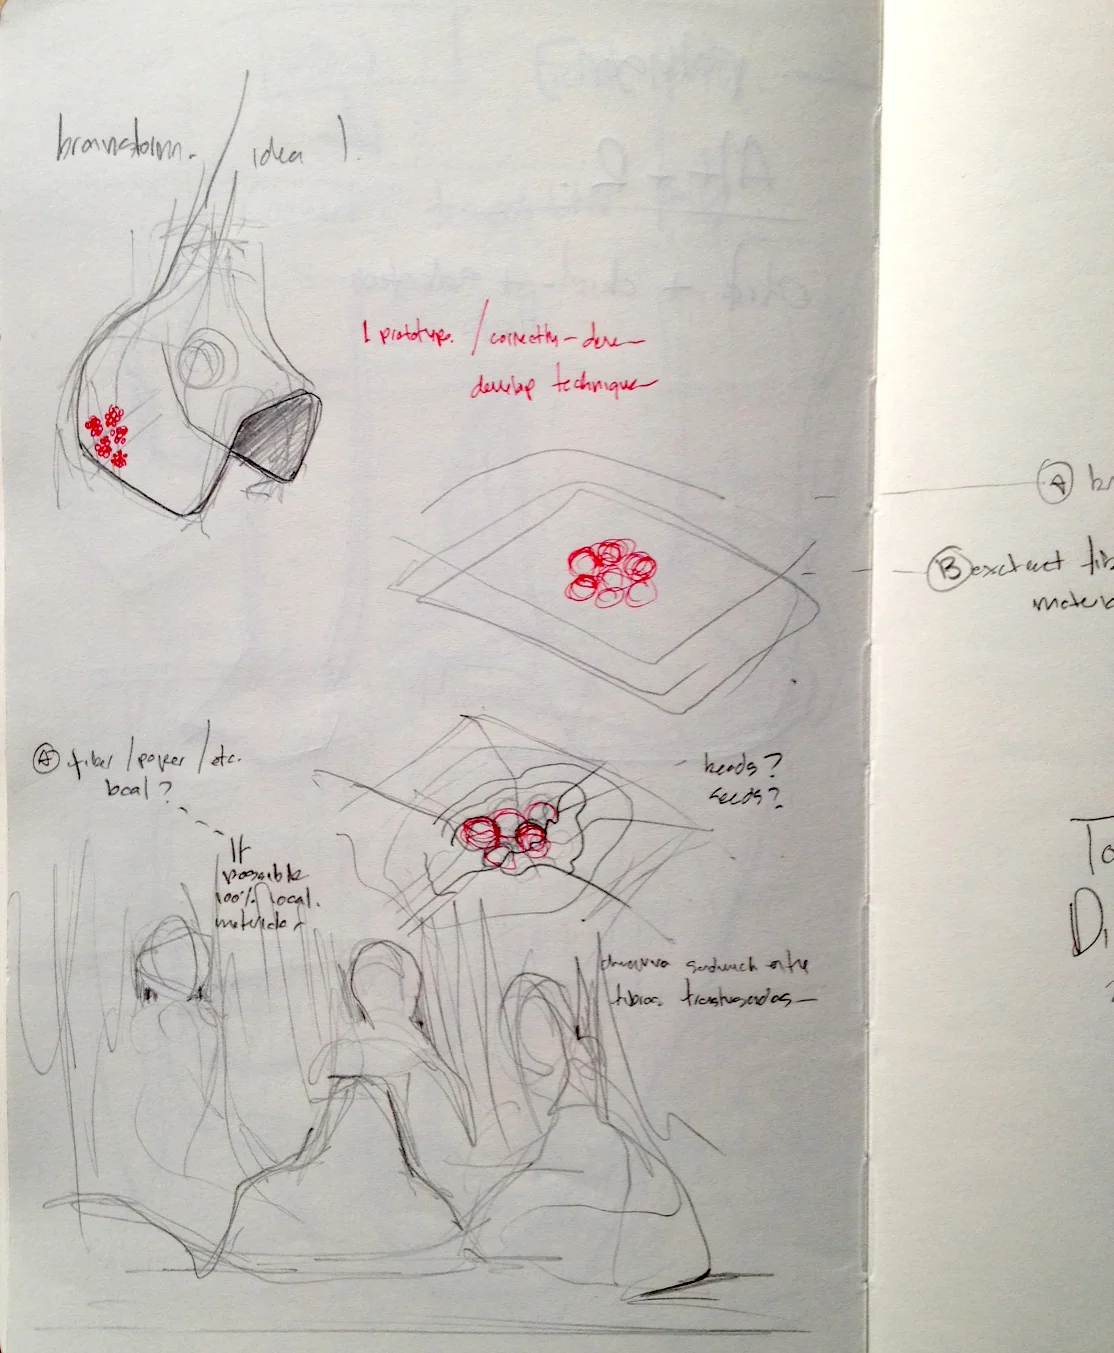 brainstorm. / idea 1.
1 prototype. / correctly - done
develop technique
A br
B extract fib
materia
A fiber / paper / etc.
local ?
beads ?
seeds ?
If
possible
100% local.
materials
sandwich entre
fibras
To
Di